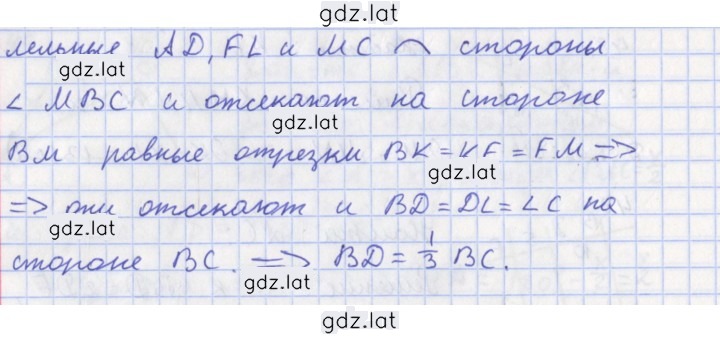 gdz.lat
лельные AD, FL и MC ⌢ стороны
gdz.lat
∠ MBC и отсекают на стороне
gdz.lat
BM равные отрезки BK = KF = FM =>
gdz.lat
=> они отсекают и BD = DL = LC на
gdz.lat
стороне BC. => BD = 1/3 BC.
gdz.lat
gdz.lat